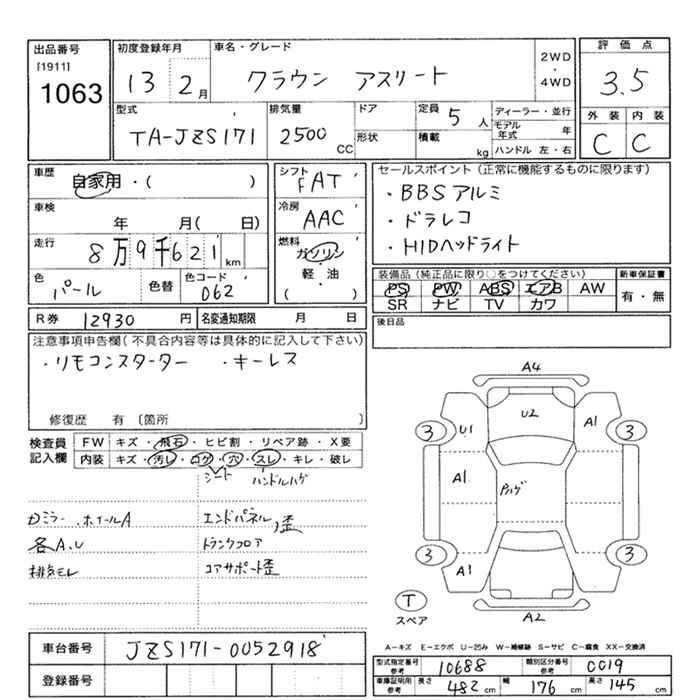 出品番号
[1911]
1063
初度登録年月
13 2月
車名・グレード
クラウン アスリート
2WD
・
4WD
評価点
3.5
外装 内装
C C
型式
TA-JZS171
排気量
2500 CC
ドア
形状
定員 5 人
積載 kg
ディーラー・並行
モデル年式 年
ハンドル 左・右
車歴 自家用・( )
車検 年 月( 日)
走行 8万9千621 km
色 パール 色替 色コード 062
シフト FAT
冷房 AAC
燃料 ガソリン
・
軽・油
( )
セールスポイント(正常に機能するものに限ります)
・BBSアルミ
・ドラレコ
・HIDヘッドライト
装備品(純正品に限り○をつけてください)
PS PW ABS エアB AW
SR ナビ TV カワ
新車保証書
有・無
R券 12930 円 名変通知期限 月 日
後日品
注意事項申告欄(不具合内容等は具体的に記入して下さい)
・リモコンスターター ・キーレス
修復歴 有 〔箇所 〕
検査員記入欄
FW キズ・飛石・ヒビ割・リペア跡・X要
内装 キズ・汚レ・コゲ・穴・スレ・キレ・破レ
シート ハンドルハゲ
ミラー、ホイールA エンドパネル、歪
各A.U トランクフロア
排気モレ コアサポート歪
A4
U2
U1 A1
3 3
A1 Pハゲ
3 3
A1
T
スペア
A2
A-キズ E-エクボ U-凹み W-補修跡 S-サビ C-腐食 XX-交換済
車台番号 JZS171-0052918
登録番号
型式指定番号 参考 10688 類別区分番号 参考 0019
車庫証明用 参考 長さ 482 cm 幅 176 cm 高さ 145 cm